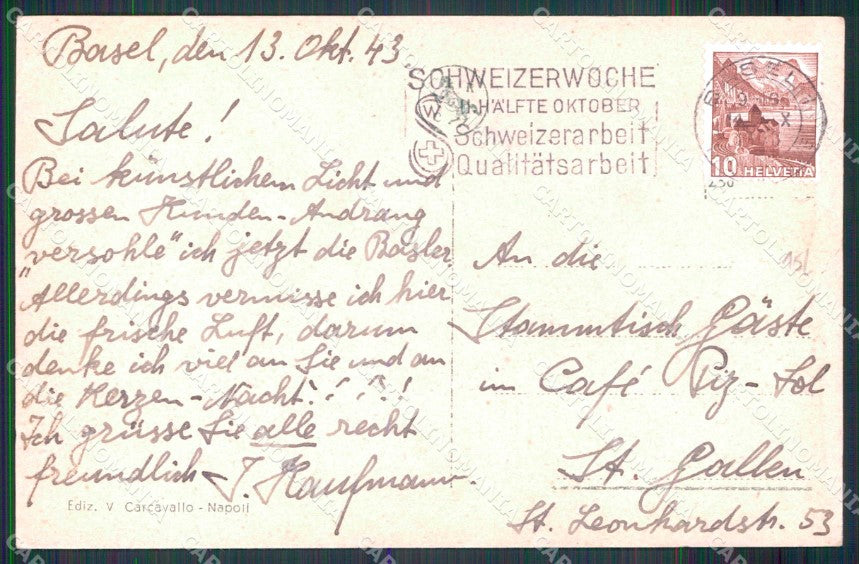 Basel, den 13. Okt. 43
Salute!
Bei künstlichem Licht und
grossen Kunden-Andrang
"versohle" ich jetzt die Basler
Allerdings vermisse ich hier
die frische Luft, darum
denke ich viel an Sie und an
die Kerzen-Nacht!!!!!
Ich grüsse Sie alle recht
freundlich J. Kaufmann.
Ediz. V Carcavallo - Napoli
SCHWEIZERWOCHE
II. HÄLFTE OKTOBER
Schweizerarbeit
Qualitätsarbeit
BASEL
10 HELVETIA
An die
Stammtisch Gäste
im Café Piz-Sol
St. Gallen
St. Leonhardstr. 53
CARTOLINOMANIA